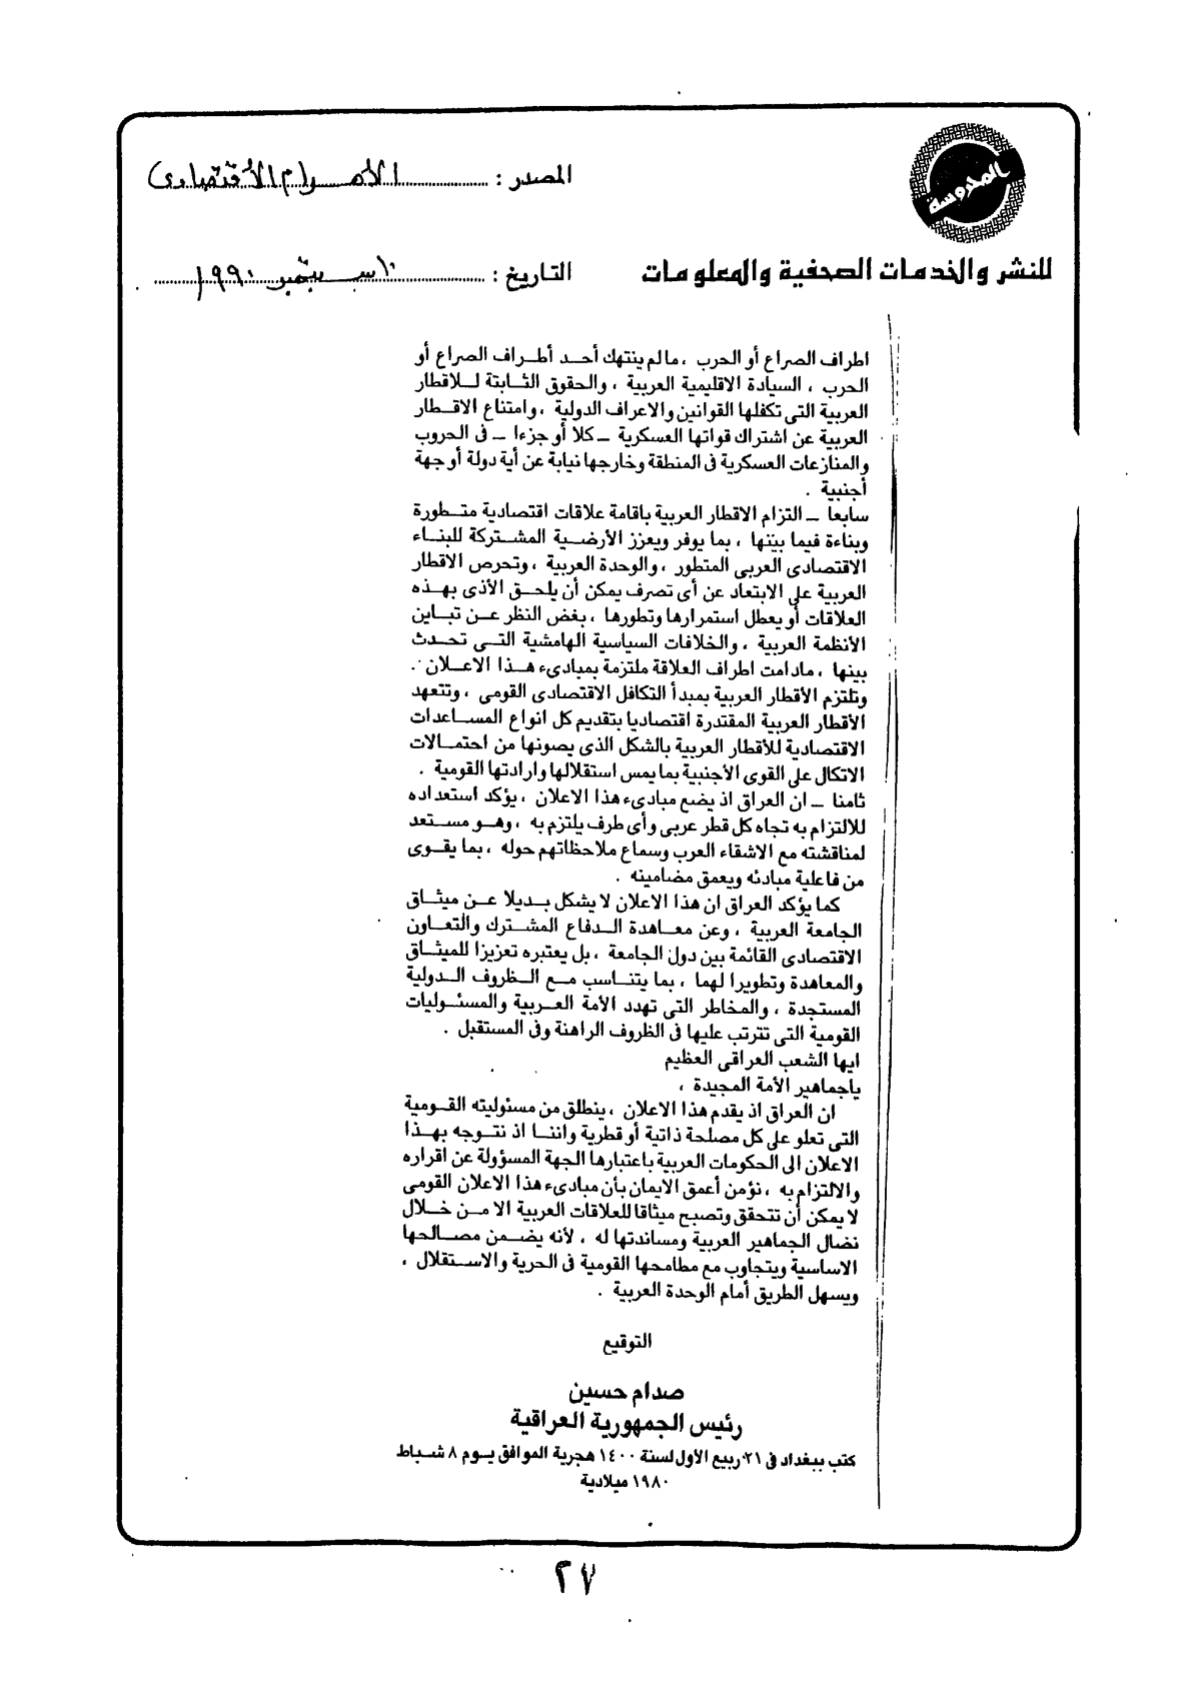 المحروسة
للنشر والخدمات الصحفية والمعلومات
المصدر : الأهرام الأقتصادى
التاريخ : ١٠ سبتمبر ١٩٩٠
اطراف الصراع أو الحرب ، مالم ينتهك أحد أطراف الصراع أو
الحرب ، السيادة الاقليمية العربية ، والحقوق الثابتة للاقطار
العربية التى تكفلها القوانين والاعراف الدولية ، وامتناع الاقطار
العربية عن اشتراك قواتها العسكرية ـ كلا أو جزءا ـ فى الحروب
والمنازعات العسكرية فى المنطقة وخارجها نيابة عن أية دولة أو جهة
أجنبية .
سابعا ـ التزام الاقطار العربية باقامة علاقات اقتصادية متطورة
وبناءة فيما بينها ، بما يوفر ويعزز الأرضية المشتركة للبناء
الاقتصادى العربى المتطور ، والوحدة العربية ، وتحرص الاقطار
العربية على الابتعاد عن أى تصرف يمكن أن يلحق الأذى بهذه
العلاقات أو يعطل استمرارها وتطورها ، بغض النظر عن تباين
الأنظمة العربية ، والخلافات السياسية الهامشية التى تحدث
بينها ، مادامت اطراف العلاقة ملتزمة بمبادىء هذا الاعلان .
وتلتزم الأقطار العربية بمبدأ التكافل الاقتصادى القومى ، وتتعهد
الأقطار العربية المقتدرة اقتصاديا بتقديم كل انواع المساعدات
الاقتصادية للأقطار العربية بالشكل الذى يصونها من احتمالات
الاتكال على القوى الأجنبية بما يمس استقلالها وارادتها القومية .
ثامنا ـ ان العراق اذ يضع مبادىء هذا الاعلان ، يؤكد استعداده
للالتزام به تجاه كل قطر عربى وأى طرف يلتزم به ، وهو مستعد
لمناقشته مع الاشقاء العرب وسماع ملاحظاتهم حوله ، بما يقوى
من فاعلية مبادئه ويعمق مضامينه .
كما يؤكد العراق ان هذا الاعلان لا يشكل بديلا عن ميثاق
الجامعة العربية ، وعن معاهدة الدفاع المشترك والتعاون
الاقتصادى القائمة بين دول الجامعة ، بل يعتبره تعزيزا للميثاق
والمعاهدة وتطويرا لهما ، بما يتناسب مع الظروف الدولية
المستجدة ، والمخاطر التى تهدد الأمة العربية والمسئوليات
القومية التى تترتب عليها فى الظروف الراهنة وفى المستقبل .
ايها الشعب العراقى العظيم
ياجماهير الأمة المجيدة ،
ان العراق اذ يقدم هذا الاعلان ، ينطلق من مسئوليته القومية
التى تعلو على كل مصلحة ذاتية أو قطرية واننا اذ نتوجه بهذا
الاعلان الى الحكومات العربية باعتبارها الجهة المسؤولة عن اقراره
والالتزام به ، نؤمن أعمق الايمان بأن مبادىء هذا الاعلان القومى
لا يمكن أن تتحقق وتصبح ميثاقا للعلاقات العربية الا من خلال
نضال الجماهير العربية ومساندتها له ، لأنه يضمن مصالحها
الاساسية ويتجاوب مع مطامحها القومية فى الحرية والاستقلال ،
ويسهل الطريق أمام الوحدة العربية .
التوقيع
صدام حسين
رئيس الجمهورية العراقية
كتب ببغداد فى ٢١ ربيع الأول لسنة ١٤٠٠ هجرية الموافق يوم ٨ شباط
١٩٨٠ ميلادية
٢٧